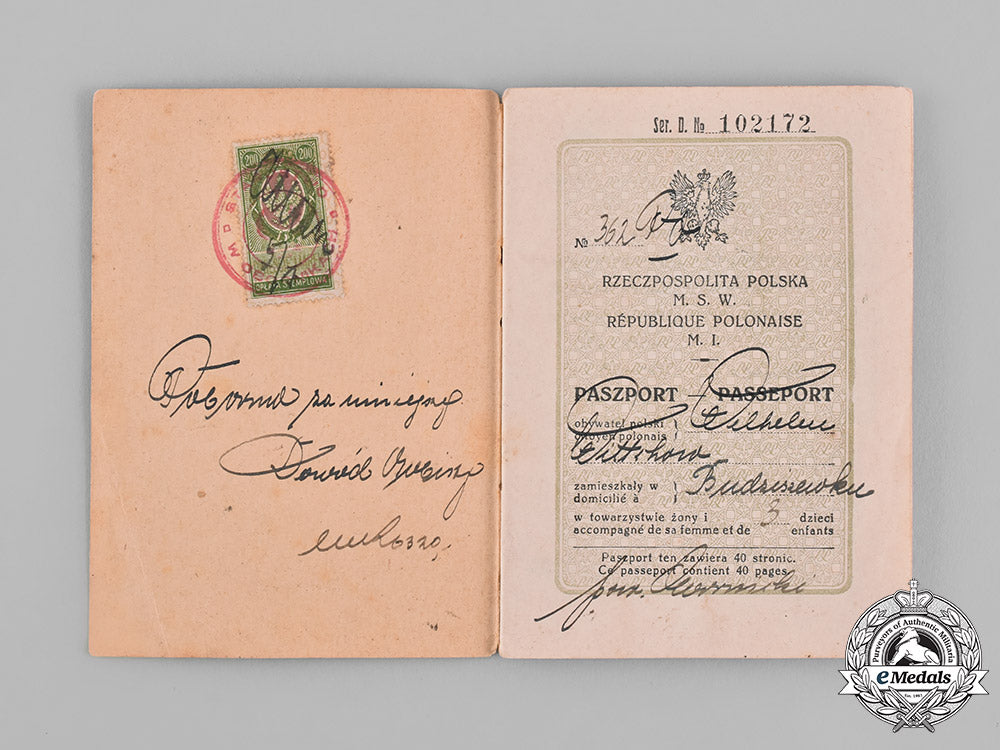 200 200
OPŁATA STEMPLOWA
za niniejszy
Dowód
Ser. D. № 102172
№ 362
RZECZPOSPOLITA POLSKA
M. S. W.
RÉPUBLIQUE POLONAISE
M. I.
PASZPORT — PASSEPORT
obywatel polski
citoyen polonais
Wilhelm
Wittchow
zamieszkały w
domicilié à
Budziszewku
w towarzystwie żony i 3 dzieci
accompagné de sa femme et de enfants
Paszport ten zawiera 40 stronic.
Ce passeport contient 40 pages
Purveyors of Authentic Militaria
eMedals